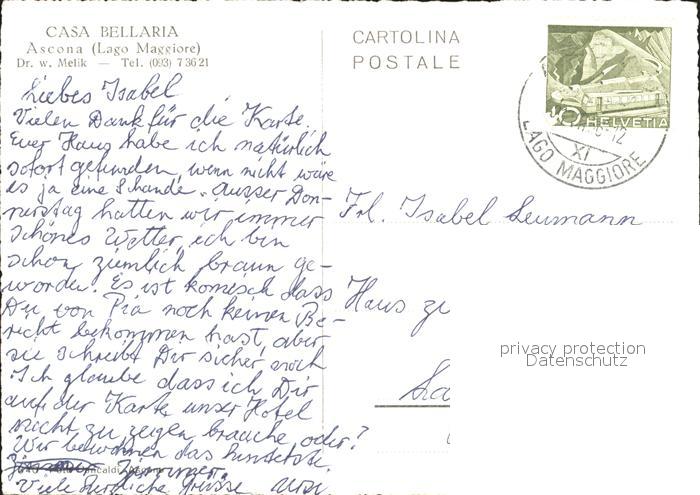 CASA BELLARIA
Ascona (Lago Maggiore)
Dr. w. Melik — Tel. (093) 7 36 21
CARTOLINA
POSTALE
HELVETIA
XI
LAGO MAGGIORE
Liebes Isabel
Vielen Dank für die Karte.
Euer Haus habe ich natürlich
sofort gefunden, wenn nicht wäre
es ja eine Schande. Ausser Don-
nerstag hatten wir immer
schönes Wetter, ich bin
schon ziemlich braun ge-
worden. Es ist komisch dass
Du von Pia noch keinen Be-
richt bekommen hast, aber
sie schreibt Dir sicher noch
Ich glaube dass ich Dir
auf der Karte unser Hotel
nicht zu zeigen brauche, oder?
Wir bewohnen das hinterste
Zimmer.
Viele herzliche Grüsse
Frl. Isabel Leumann
Haus zu
privacy protection
Datenschutz